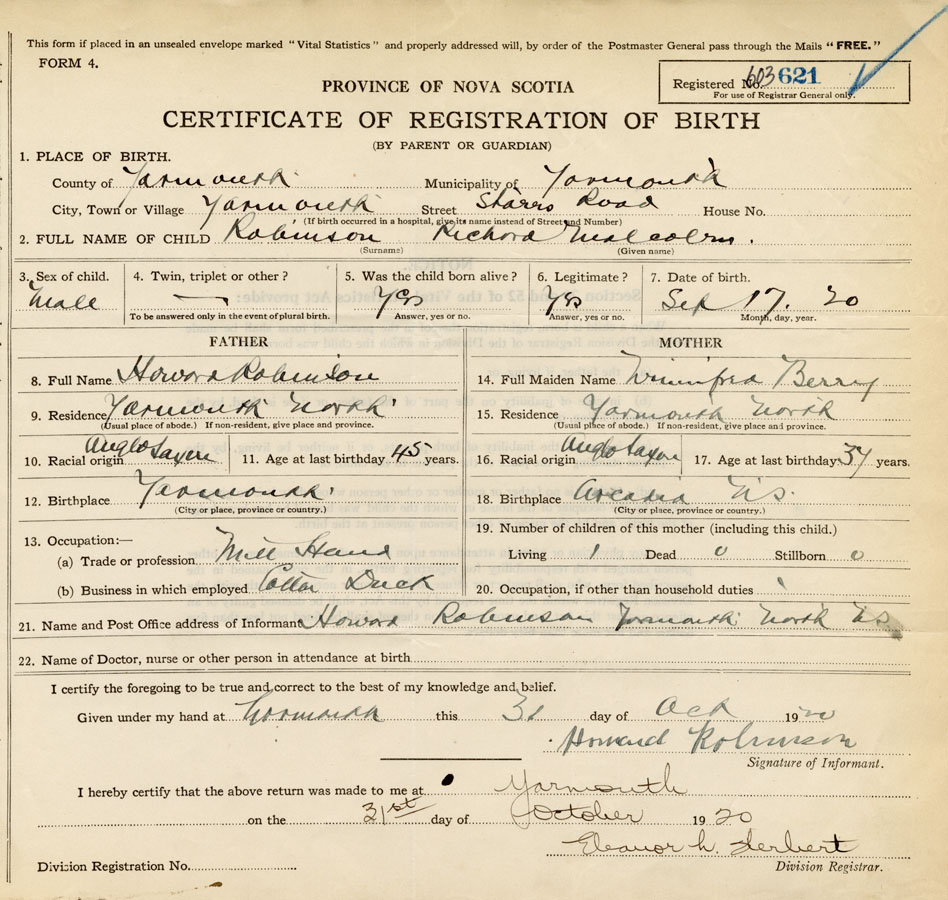 This form if placed in an unsealed envelope marked "Vital Statistics" and properly addressed will, by order of the Postmaster General pass through the Mails "FREE."
FORM 4.
Registered No. 603 621
For use of Registrar General only.
PROVINCE OF NOVA SCOTIA
CERTIFICATE OF REGISTRATION OF BIRTH
(BY PARENT OR GUARDIAN)
1. PLACE OF BIRTH.
County of Yarmouth Municipality of Yarmouth
City, Town or Village Yarmouth Street Starrs Road House No.
(If birth occurred in a hospital, give its name instead of Street and Number)
2. FULL NAME OF CHILD Robinson Richard Malcolm.
(Surname) (Given name)
3. Sex of child. 4. Twin, triplet or other? 5. Was the child born alive? 6. Legitimate? 7. Date of birth.
Male — Yes Yes Sep 17. 20
To be answered only in the event of plural birth. Answer, yes or no. Answer, yes or no. Month, day, year.
FATHER MOTHER
8. Full Name Howard Robinson 14. Full Maiden Name Winnifred Berry
9. Residence Yarmouth North 15. Residence Yarmouth North
(Usual place of abode.) If non-resident, give place and province. (Usual place of abode.) If non-resident, give place and province.
10. Racial origin Anglo Saxon 11. Age at last birthday 45 years. 16. Racial origin Anglo Saxon 17. Age at last birthday 37 years.
12. Birthplace Yarmouth 18. Birthplace Arcadia N.S.
(City or place, province or country.) (City or place, province or country.)
13. Occupation:— 19. Number of children of this mother (including this child.)
(a) Trade or profession Mill Hand Living 1 Dead 0 Stillborn 0
(b) Business in which employed Cotton Duck 20. Occupation, if other than household duties
21. Name and Post Office address of Informant Howard Robinson Yarmouth North NS
22. Name of Doctor, nurse or other person in attendance at birth
I certify the foregoing to be true and correct to the best of my knowledge and belief.
Given under my hand at Yarmouth this 31 day of Oct 1920
Howard Robinson
Signature of Informant.
I hereby certify that the above return was made to me at Yarmouth
on the 31st day of October 1920
Eleanor h. Herbert
Division Registration No. Division Registrar.